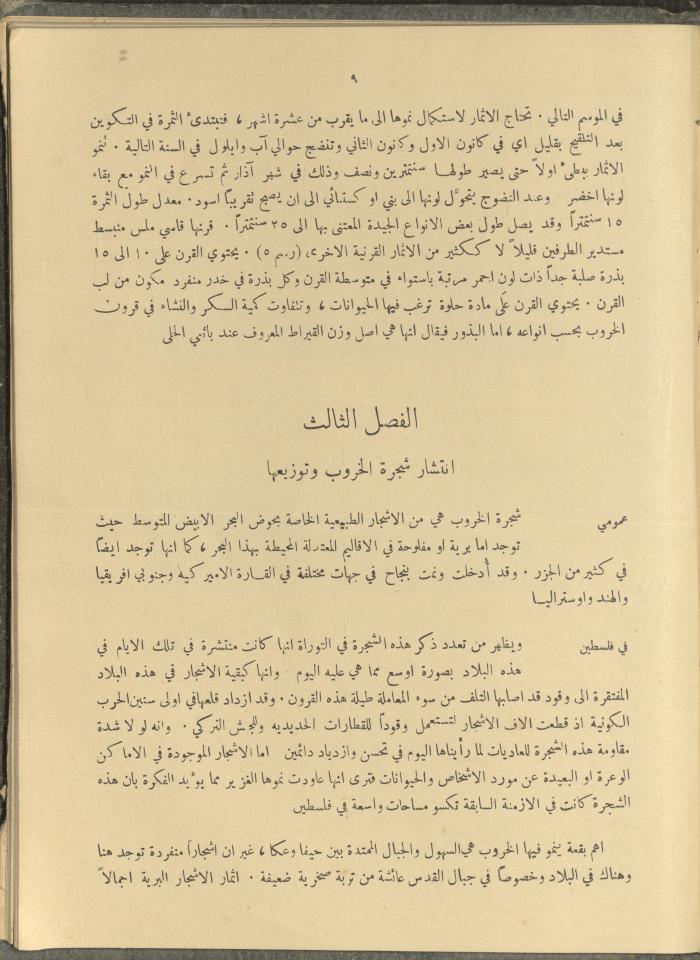 ٩
في الموسم التالي ٠ تحتاج الاثمار لاستكمال نموها الى ما يقرب من عشرة اشهر ، فتبتدئ الثمرة في التكوين
بعد التلقيح بقليل اي في كانون الاول وكانون الثاني وتنضج حوالي آب وايلول في السنة التالية ٠ تنمو
الاثمار ببطئ اولاً حتى يصير طولها سنتمترين ونصف وذلك في شهر آذار ثم تسرع في النمو مع بقاء
لونها اخضر وعند النضوج يتحوّل لونها الى بني او كستنائي الى ان يصبح تقريباً اسود ٠ معدل طول الثمرة
١٥ سنتمتراً وقد يصل طول بعض الانواع الجيدة المعتنى بها الى ٢٥ سنتمتراً ٠ قرنها قاسي ملس منبسط
مستدير الطرفين قليلاً لا ككثير من الاثمار القرنية الاخرى، (رسم ٥) ٠ يحتوي القرن على ١٠ الى ١٥
بذرة صلبة جداً ذات لون احمر مرتبة باستواء في متوسطة القرن وكل بذرة في خدر منفرد مكون من لب
القرن ٠ يحتوي القرن على مادة حلوة ترغب فيها الحيوانات ، وتتفاوت كمية السكر والنشاء في قرون
الخروب بحسب انواعه ، اما البذور فيقال انها هي اصل وزن القيراط المعروف عند بائعي الحلى
الفصل الثالث
انتشار شجرة الخروب وتوزيعها
عمومي
شجرة الخروب هي من الاشجار الطبيعية الخاصة بحوض البحر الابيض المتوسط حيث
توجد اما برية او مفلوحة في الاقاليم المعتدلة المحيطة بهذا البحر ، كما انها توجد ايضاً
في كثير من الجزر ٠ وقد أدخلت ونمت بنجاح في جهات مختلفة في القارة الاميركية وجنوبي افريقيا
والهند واوستراليا
في فلسطين
ويظهر من تعدد ذكر هذه الشجرة في التوراة انها كانت منتشرة في تلك الايام في
هذه البلاد بصورة اوسع مما هي عليه اليوم وانها كبقية الاشجار في هذه البلاد
المفتقرة الى وقود قد اصابها التلف من سوء المعاملة طيلة هذه القرون ٠ وقد ازداد قلعها في اولى سنين الحرب
الكونية اذ قطعت الاف الاشجار لتستعمل وقوداً للقطارات الحديديه وللجش التركي ٠ وانه لولا شدة
مقاومة هذه الشجرة للعاديات لما رأيناها اليوم في تحسن وازدياد دائمين اما الاشجار الموجودة في الاماكن
الوعرة او البعيدة عن مورد الاشخاص والحيوانات فترى انها عاودت نموها الغزير مما يؤيد الفكرة بان هذه
الشجرة كانت في الازمنة السابقة تكسو مساحات واسعة في فلسطين
اهم بقعة ينمو فيها الخروب هي السهول والجبال الممتدة بين حيفا وعكا ، غير ان اشجاراً منفردة توجد هنا
وهناك في البلاد وخصوصاً في جبال القدس عائشة من تربة صخرية ضعيفة ٠ اثمار الاشجار البرية اجمالاً